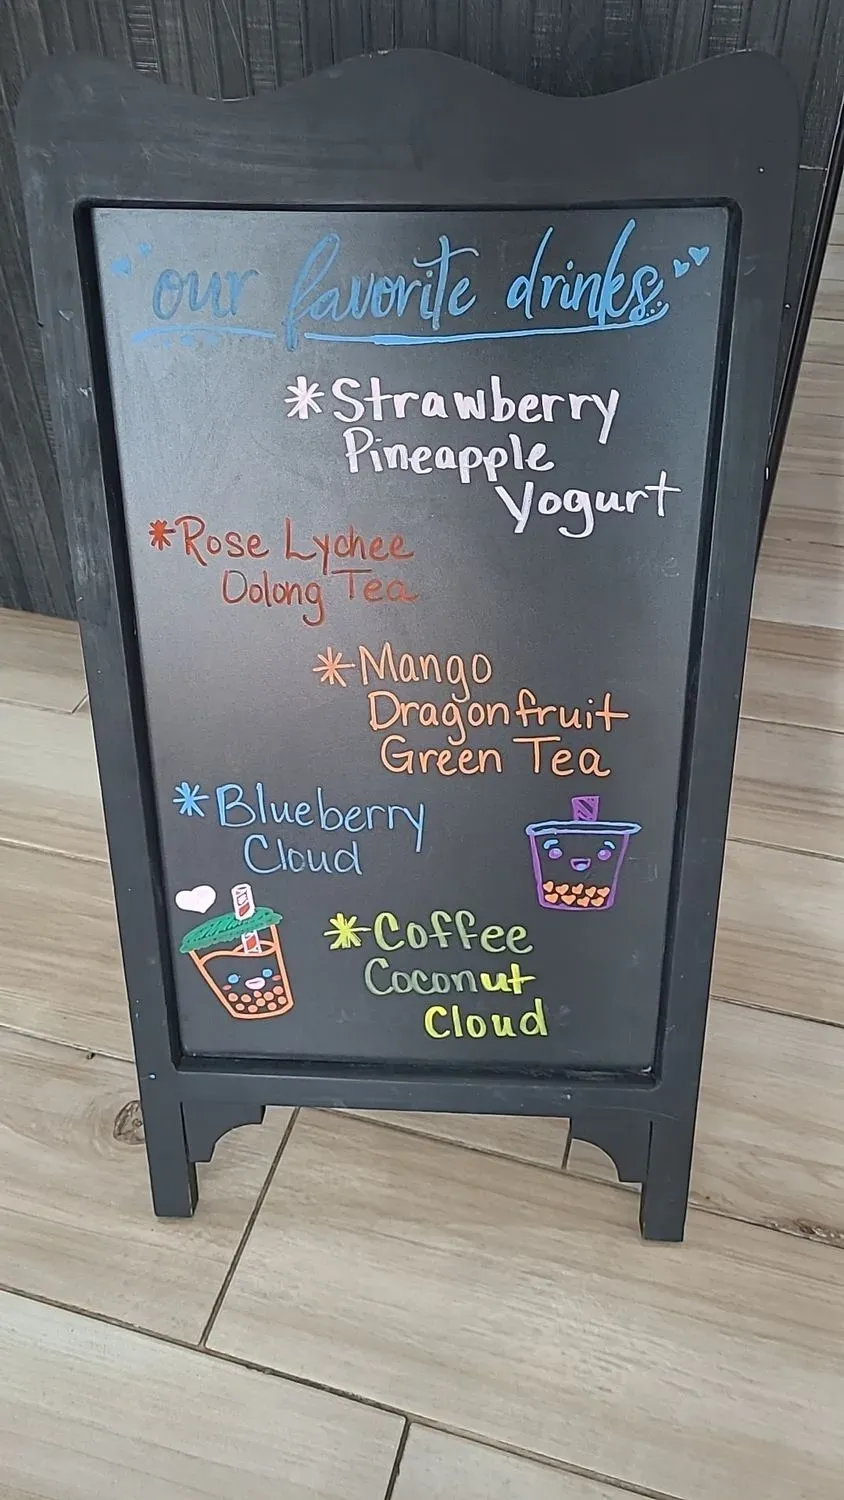 our favorite drinks
*Strawberry
Pineapple
Yogurt
*Rose Lychee
Oolong Tea
*Mango
Dragonfruit
Green Tea
*Blueberry
Cloud
*Coffee
Coconut
Cloud